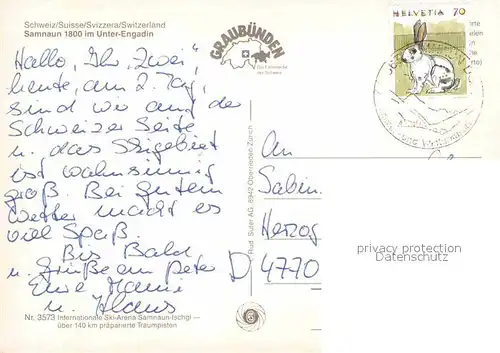 Schweiz/Suisse/Svizzera/Switzerland
Samnaun 1800 im Unter-Engadin
Hallo, Ihr „zwei"
heute, am 2. Tag,
sind wir auf der
Schweizer Seite
u. das Skigebiet
ist wahnsinnig
groß. Bei gutem
Wetter macht es
viel Spaß.
Bis Bald
u. Grüße an Peter
Eure Mami
u. Klaus
Nr. 3573 Internationale Ski-Arena Samnaun-Ischgl —
über 140 km präparierte Traumpisten
GRAUBÜNDEN
Die Ferienecke
der Schweiz
HELVETIA 70
Rud. Suter AG, 8942 Oberrieden Zürich
An
Sabin.
Herzog
D 4770
privacy protection
Datenschutz